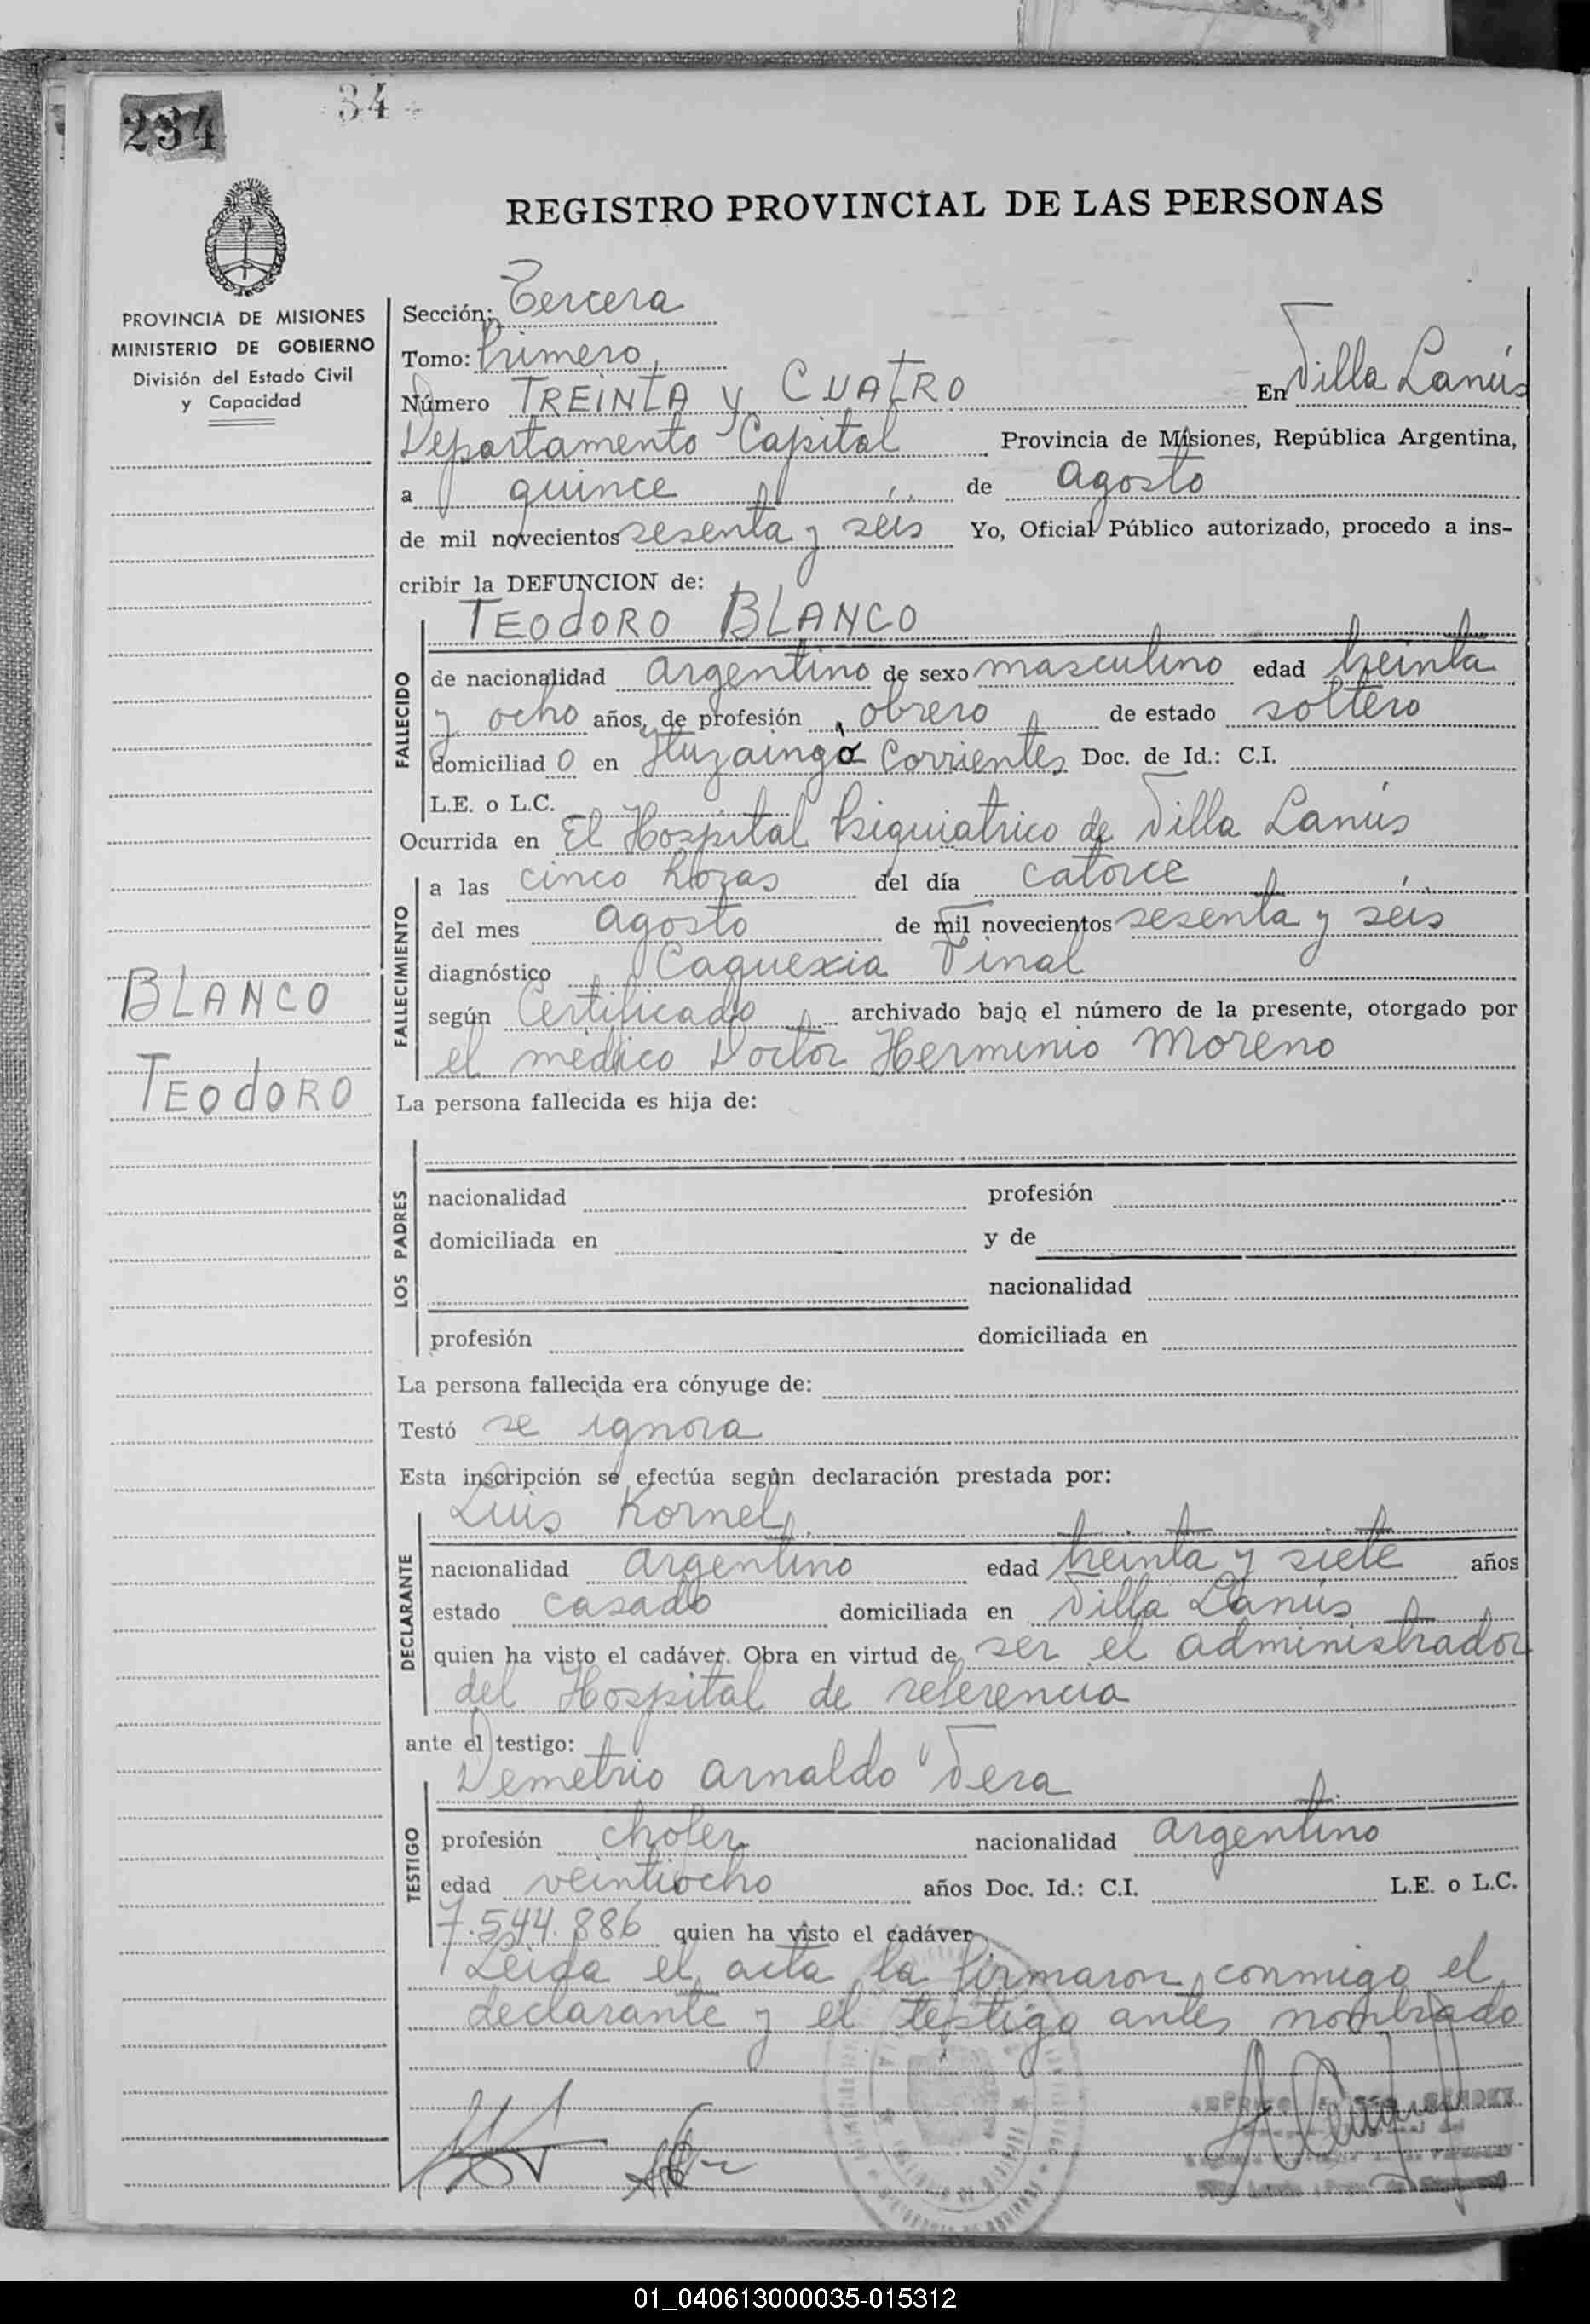 234
34
REGISTRO PROVINCIAL DE LAS PERSONAS
PROVINCIA DE MISIONES
MINISTERIO DE GOBIERNO
División del Estado Civil
y Capacidad
Sección: Tercera
Tomo: Primero
Número TREINTA y CUATRO En Villa Lanús
Departamento Capital Provincia de Misiones, República Argentina,
a quince de agosto
de mil novecientos sesenta y seis Yo, Oficial Público autorizado, procedo a ins-
cribir la DEFUNCION de:
TEODORO BLANCO
FALLECIDO
de nacionalidad argentino de sexo masculino edad treinta
y ocho años, de profesión obrero de estado soltero
domiciliado en Ituzaingo Corrientes Doc. de Id.: C.I.
L.E. o L.C.
Ocurrida en El Hospital Psiquiatrico de Villa Lanús
FALLECIMIENTO
a las cinco horas del día catorce
del mes agosto de mil novecientos sesenta y seis
diagnóstico Caquexia Final
según Certificado archivado bajo el número de la presente, otorgado por
el médico Doctor Herminio Moreno
BLANCO
TEODORO
La persona fallecida es hija de:
LOS PADRES
nacionalidad profesión
domiciliada en y de
nacionalidad
profesión domiciliada en
La persona fallecida era cónyuge de:
Testó se ignora
Esta inscripción se efectúa según declaración prestada por:
DECLARANTE
Luis Kornel
nacionalidad argentino edad treinta y siete años
estado casado domiciliada en Villa Lanús
quien ha visto el cadáver. Obra en virtud de ser el administrador
del Hospital de referencia
ante el testigo:
TESTIGO
Demetrio Arnaldo Vera
profesión chofer nacionalidad argentino
edad veintiocho años Doc. Id.: C.I. L.E. o L.C.
7.544.886 quien ha visto el cadáver
Leida el acta la firmaron conmigo el
declarante y el testigo antes nombrado
01_040613000035-015312